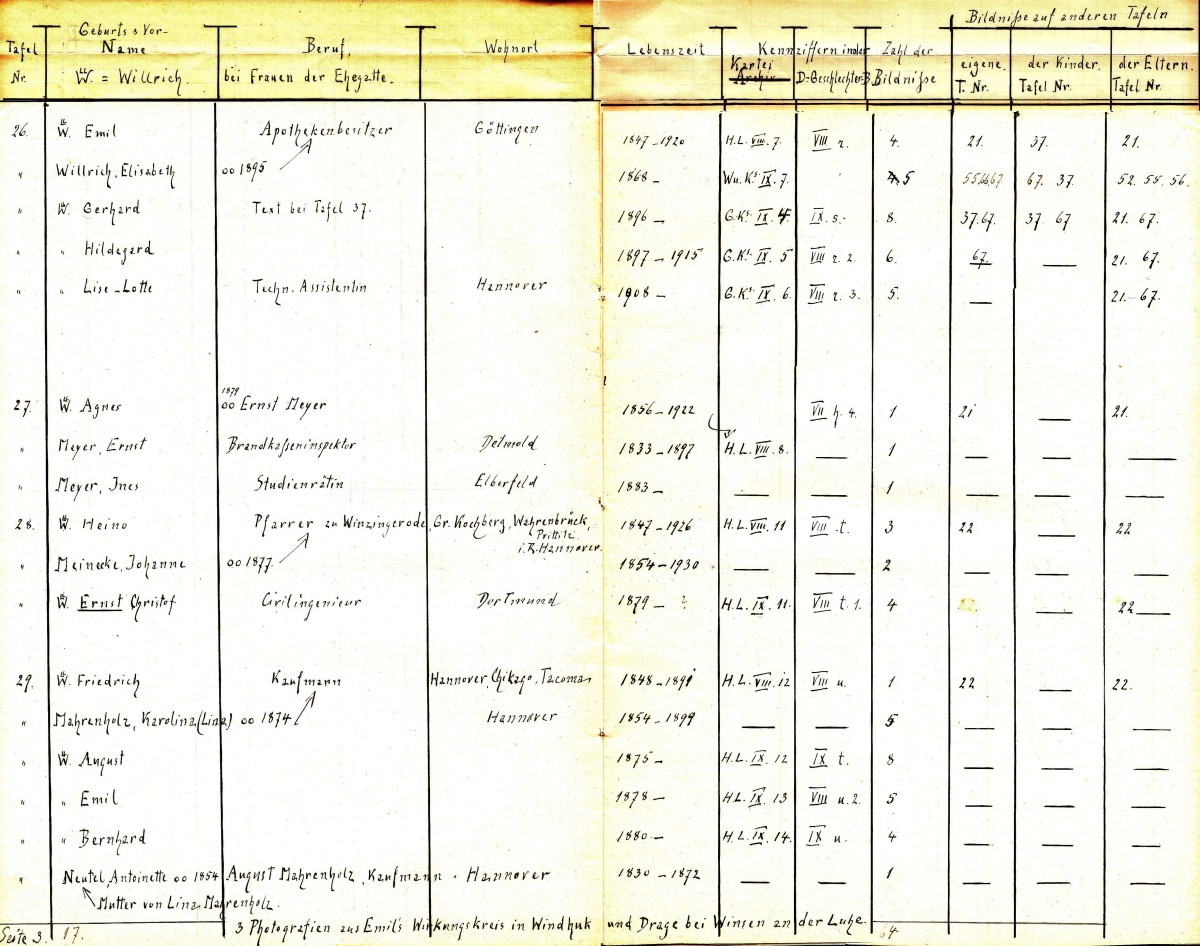 Bildniſſe auf anderen Tafeln
Geburts & Vor-
Tafel Name Beruf, Wohnort Lebenszeit Kennziffern in der Zahl der eigene. der Kinder. der Eltern.
Kartei
Nr. W. = Willrich. bei Frauen der Ehegatte. Archiv D=Geschlechter-B. Bildniſſe T. Nr. Tafel Nr. Tafel Nr.
26. W. Emil Apothekenbesitzer Göttingen 1847-1920 H.L. VIII. 7. VIII r. 4. 21. 37. 21.
" Willrich, Elisabeth oo 1895 1868 - Wu. Ks. IX. 7. 5 67. 37. 52. 55. 56.
" W. Gerhard Text bei Tafel 37. 1896 - G.Ks. IX. 4 IX. s. 8. 37.67. 37 67 21. 67.
" " Hildegard 1897-1915 G.Ks. IX. 5 VIII r. 2. 6. 67. — 21. 67.
" " Lise-Lotte Techn. Assistentin Hannover 1908 - G.Ks. IX. 6. VIII r. 3. 5. — 21.-67.
1879
27. W. Agnes oo Ernst Meyer 1856-1922 VII h. 4. 1 21 — 21.
" Meyer, Ernst Brandkaſſeninspektor Detmold 1833-1897 H.L. VIII. 8. — 1 — — —
" Meyer, Ines Studienrätin Elberfeld 1883 - — — 1 — — —
28. W. Heino Pfarrer zu Winzingerode, Gr. Kochberg, Wahrenbrück, 1847-1926 H.L. VIII. 11 VIII. t. 3 22 — 22
Prittitz.
i.R. Hannover.
" Meinecke, Johanne oo 1877. 1854-1930 — — 2 — — —
" W. Ernst Christof Civilingenieur Dortmund 1879 - ? H.L. IX. 11. VIII t. 1. 4 22. — 22 —
29. W. Friedrich Kaufmann Hannover, Chikago, Tacoma 1848-1891 H.L. VIII. 12 VIII u. 1 22 — 22.
" Mahrenholz, Karolina (Lina) oo 1874 Hannover 1854-1899 — — 5 — — —
" W. August 1875 - H.L. IX. 12 IX t. 8 — — —
" " Emil 1878 - H.L. IX. 13 VIII u. 2. 5 — — —
" " Bernhard 1880 - H.L. IX. 14. IX u. 4 — — —
" Neutel, Antoinette oo 1854 August Mahrenholz, Kaufmann . Hannover 1830-1872 — — 1 — — —
Mutter von Lina Mahrenholz.
3 Photografien aus Emil's Wirkungskreis in Windhuk und Drage bei Winsen an der Luhe.
Seite 3. 17. 64